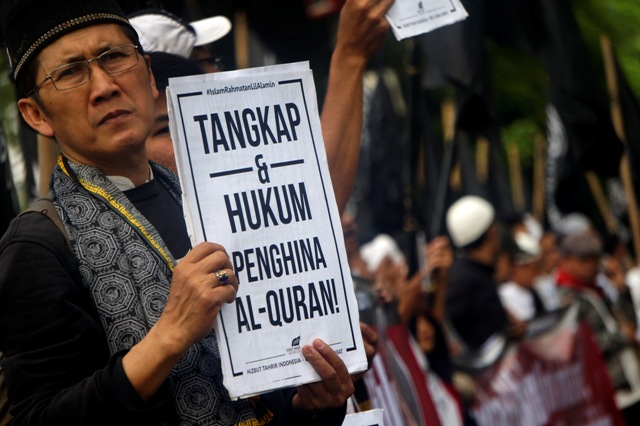 #IslamRahmatanLilAlamin
TANGKAP
&
HUKUM
PENGHINA
AL-QURAN!
HIZBUT TAHRIR INDONESIA -